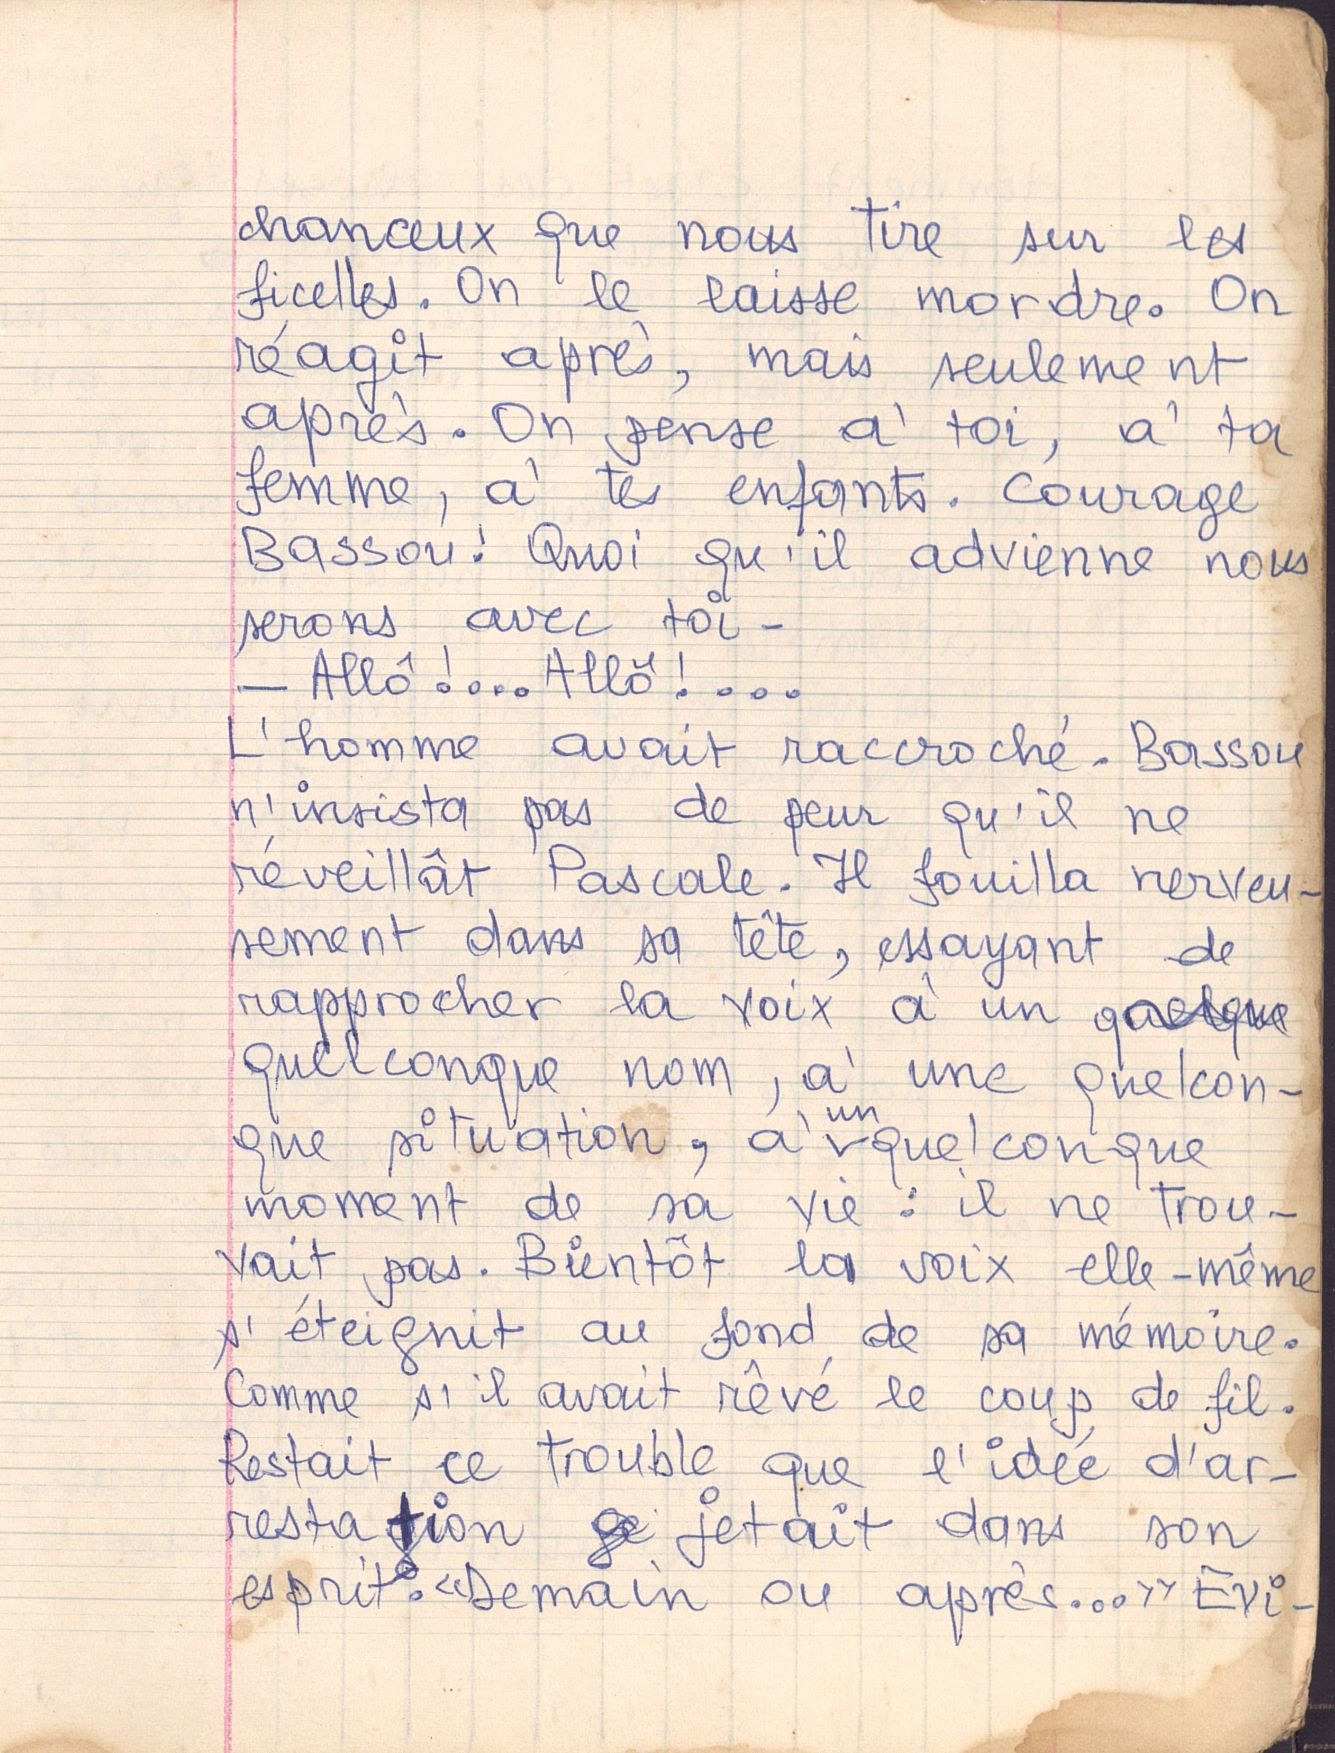 chanceux que nous tire sur les
ficelles. On le laisse mordre. On
réagit après, mais seulement
après. On pense à toi, à ta
femme, à tes enfants. Courage
Bassou! Quoi qu'il advienne nous
serons avec toi -
— Allô !.... Allô ! ....
L'homme avait raccroché. Bassou
n'insista pas de peur qu'il ne
réveillât Pascale. Il fouilla nerveu-
sement dans sa tête, essayant de
rapprocher la voix à un quelque
quelconque nom, à une quelcon-
que situation, à un quelconque
moment de sa vie : il ne trou-
vait pas. Bientôt la voix elle-même
s'éteignit au fond de sa mémoire.
Comme s'il avait rêvé le coup de fil.
Restait ce trouble que l'idée d'ar-
restation jetait dans son
esprit. «Demain ou après...» Evi-